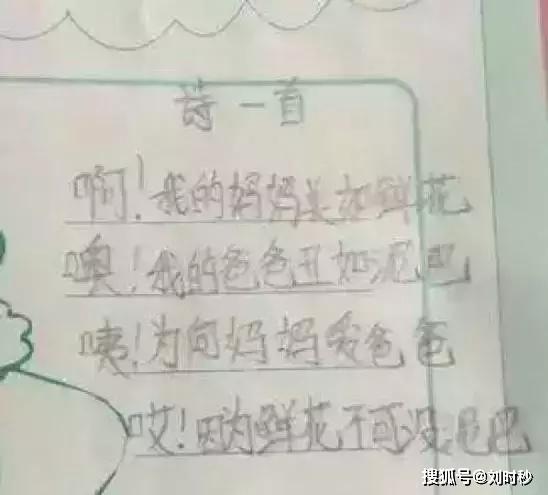 诗一首
啊!我的妈妈美如鲜花
噢!我的爸爸丑如泥巴
咦!为何妈妈爱爸爸
哎!因为鲜花不可没泥巴
搜狐号@刘时秒